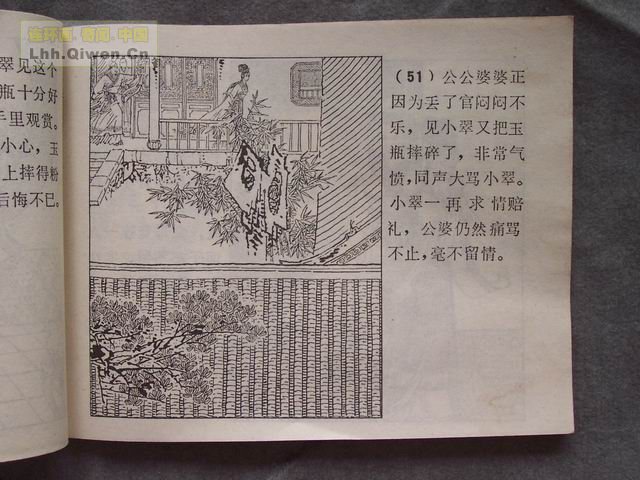 连环画.奇闻.中国
Lhh.Qiwen.Cn
翠见这个
瓶十分好
手里观赏。
小心，玉
上摔得粉
后悔不已。
（51）公公婆婆正
因为丢了官闷闷不
乐，见小翠又把玉
瓶摔碎了，非常气
愤，同声大骂小翠。
小翠一再求情赔
礼，公婆仍然痛骂
不止，毫不留情。